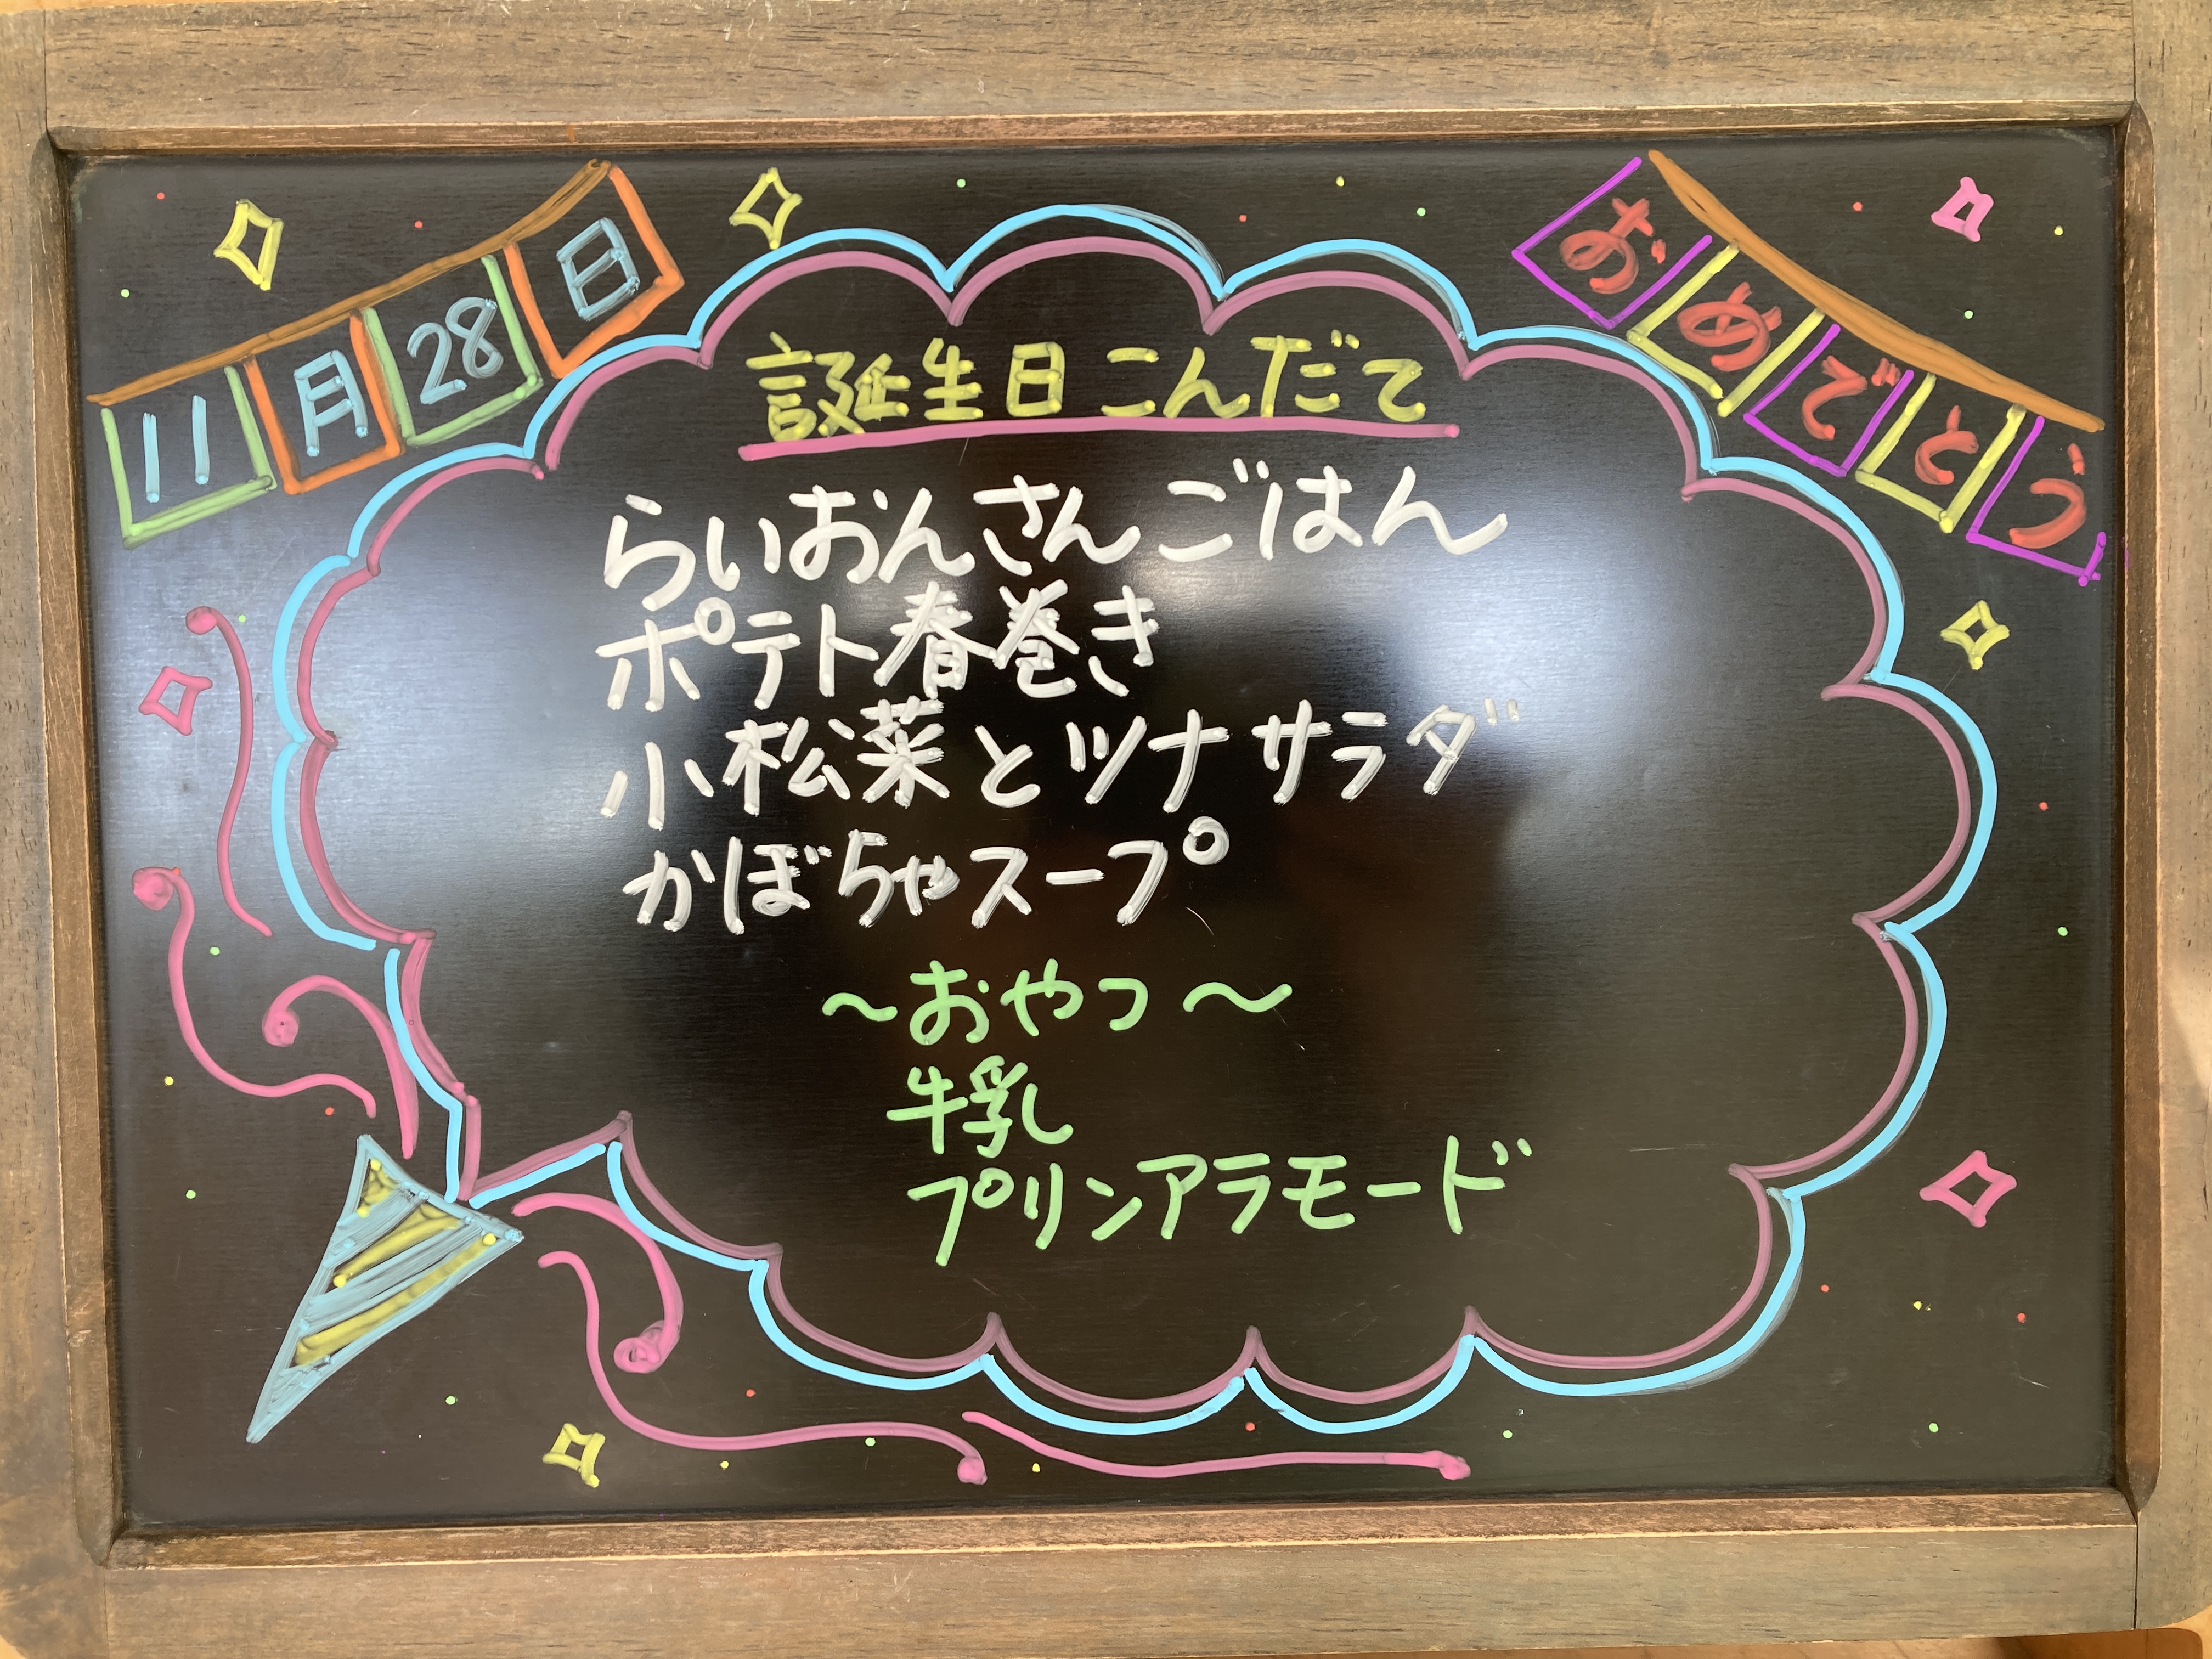 11月28日
おめでとう
誕生日こんだて
らいおんさんごはん
ポテト春巻き
小松菜とツナサラダ
かぼちゃスープ
～おやつ～
牛乳
プリンアラモード